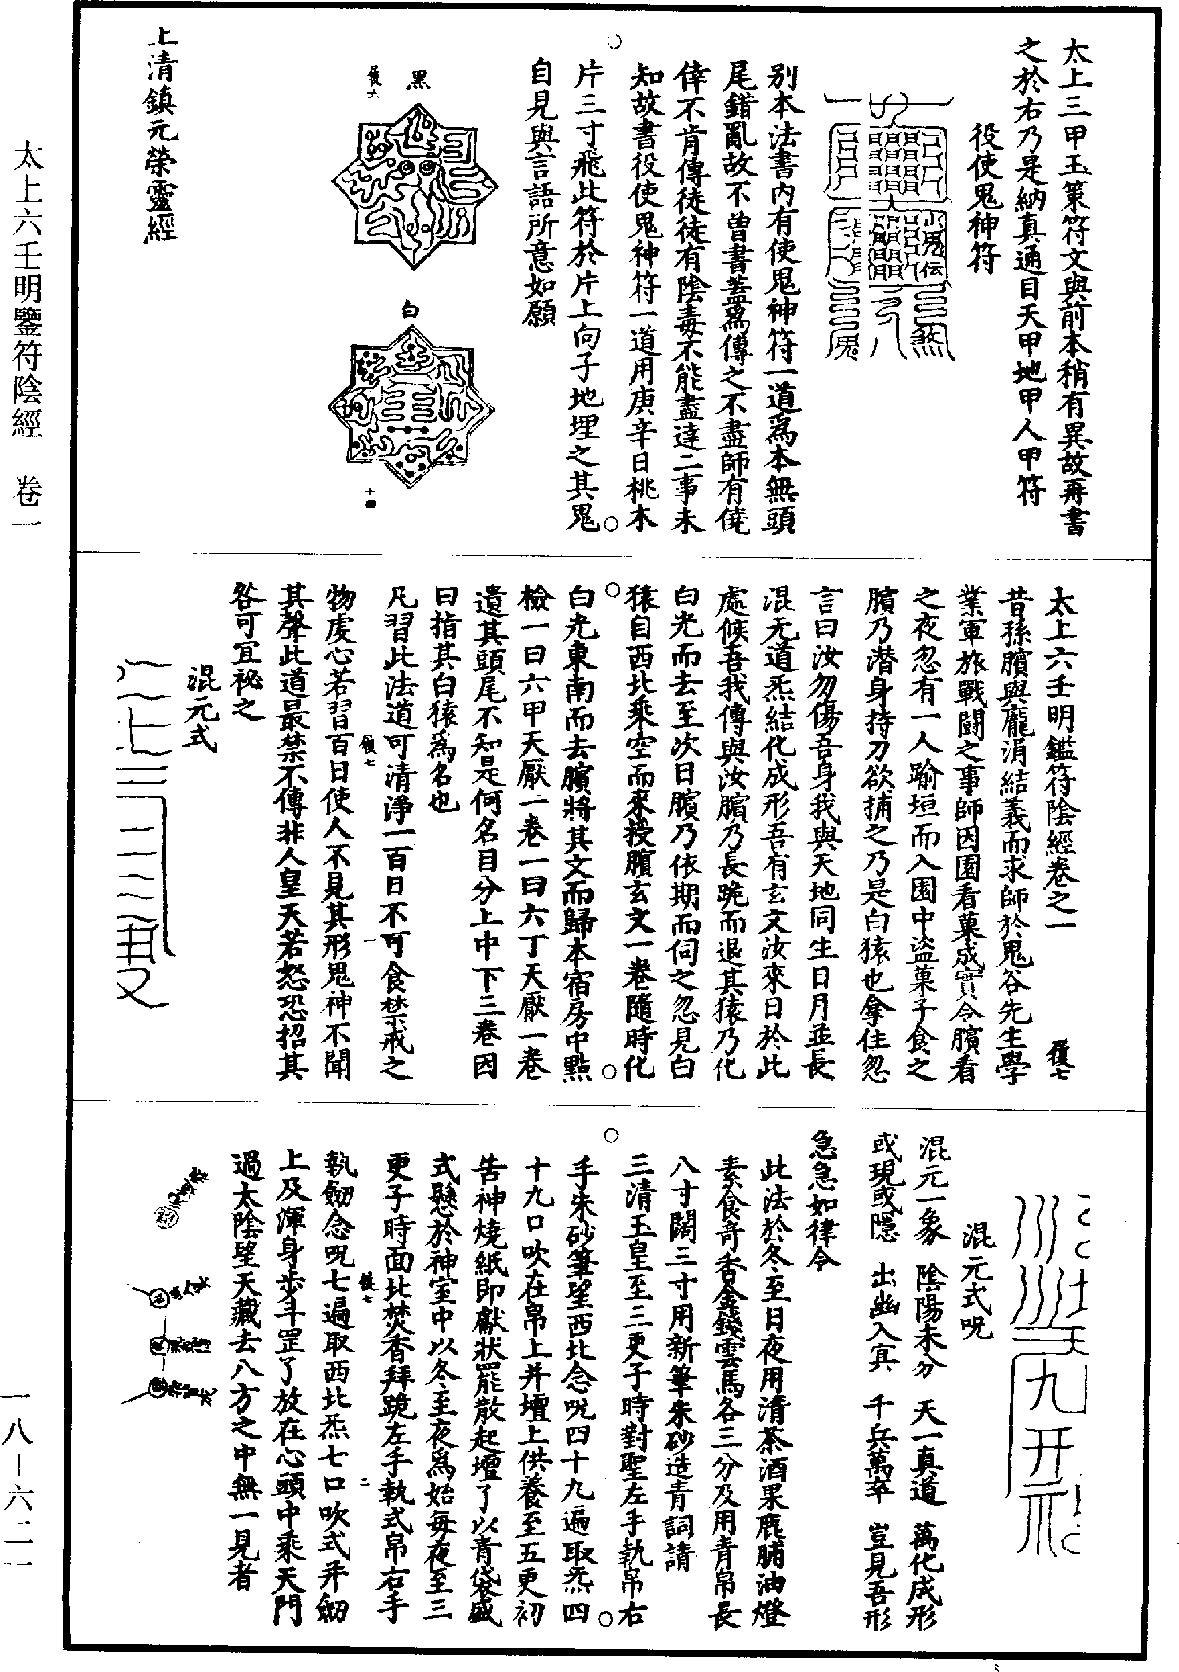 太上三甲玉策符文與前本稍有異故再書
之於右乃是納真通目天甲地甲人甲符
役使鬼神符
別本法書内有使鬼神符一道爲本無頭
尾錯亂故不曾書蓋爲傳之不盡師有僥
倖不肯傳徒徒有陰毒不能盡達二事未
知故書役使鬼神符一道用庚辛日桃木
片三寸飛此符於片上向子地埋之其鬼
自見與言語所意如願
黑
白
十四
上清鎮元榮靈經
太上六壬明鑑符陰經卷之一
昔孫臏與龐涓結義而求師於鬼谷先生學
業軍旅戰鬪之事師因園看菓成實令臏看
之夜忽有一人踰垣而入園中盜菓子食之
臏乃潛身持刀欲捕之乃是白猿也拿住忽
言曰汝勿傷吾身我與天地同生日月並長
混无道炁結化成形吾有玄文汝來日於此
處候吾我傳與汝臏乃長跪而退其猿乃化
白光而去至次日臏乃依期而伺之忽見白
猿自西北乘空而來授臏玄文一卷隨時化
白光東南而去臏將其文而歸本宿房中點
檢一曰六甲天厭一卷一曰六丁天厭一卷
遺其頭尾不知是何名目分上中下三卷因
曰指其白猿爲名也
凡習此法道可清淨一百日不可食禁戒之
物虔心若習百日使人不見其形鬼神不聞
其聲此道最禁不傳非人皇天若怒恐招其
咎可宜祕之
一
混元式
混元式呪
混元一象 陰陽未分 天一真道 萬化成形
或現或隱 出幽入冥 千兵萬卒 豈見吾形
急急如律令
此法於冬至日夜用清茶酒果鹿脯油燈
素食奇香金錢雲馬各三分及用青帛長
八寸闊三寸用新筆朱砂造青詞請
三清玉皇至三更子時對聖左手執帛右
手朱砂筆望西北念呪四十九遍取炁四
十九口吹在帛上并壇上供養至五更初
告神燒紙即獻狀罷散起壇了以青袋盛
式懸於神室中以冬至夜爲始每夜至三
更子時面北焚香拜跪左手執式帛右手
執劒念呪七遍取西北炁七口吹式并劒
上及渾身步斗罡了放在心頭中乘天門
過太陰望天藏去八方之中無一見者
二
太上六壬明鑒符陰經 卷一
一八—六二一